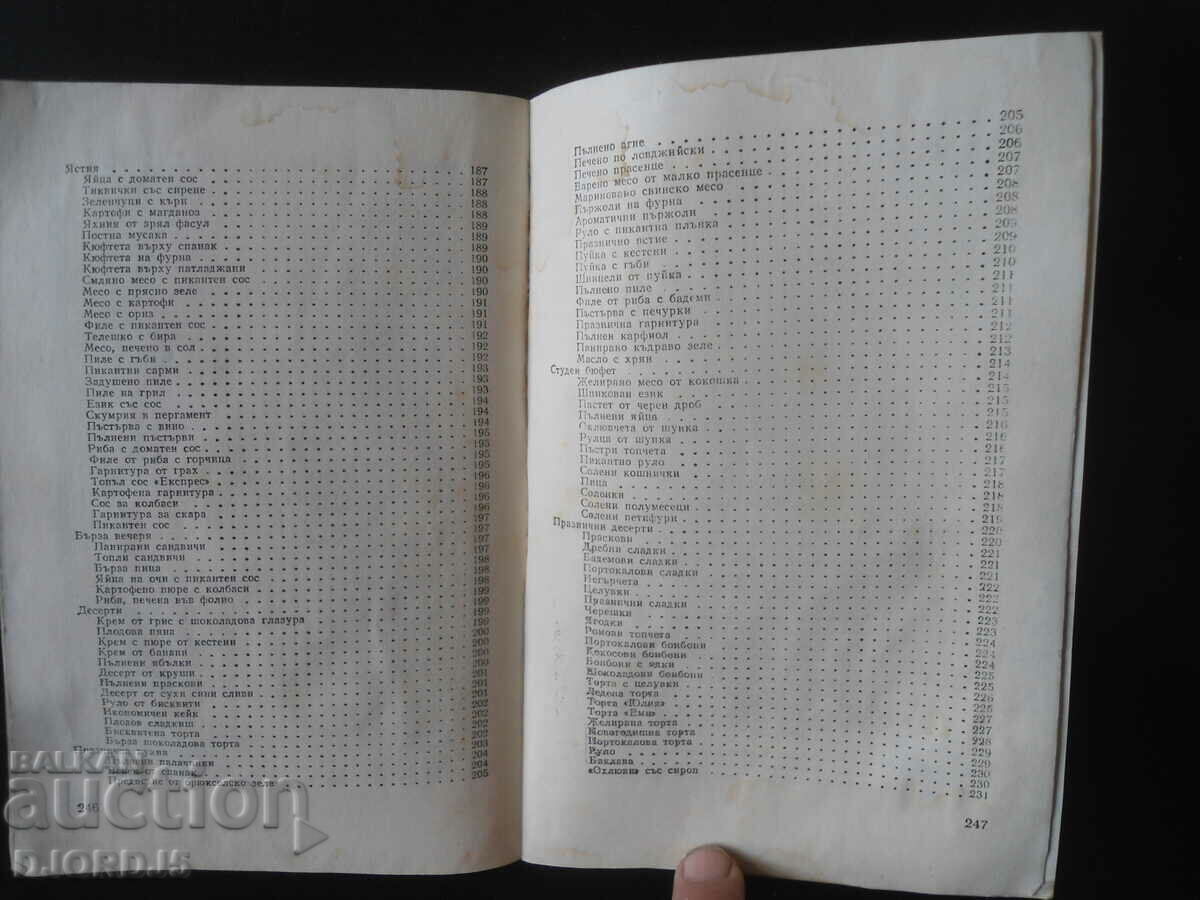 Ястия 187
Яйца с доматен сос 187
Тиквички със сирене 188
Зеленчуци с къри 188
Картофи с магданоз 188
Яхния от зрял фасул 189
Постна мусака 189
Кюфтета върху спанак 189
Кюфтета на фурна 190
Кюфтета върху патладжани 190
Смляно месо с пикантен сос 190
Месо с прясно зеле 190
Месо с картофи 191
Месо с ориз 191
Филе с пикантен сос 191
Телешко с бира 192
Месо, печено в сол 192
Пиле с гъби 192
Пикантни сарми 193
Задушено пиле 193
Пиле на грил 193
Език със сос 194
Скумрия в пергамент 194
Пъстърва с вино 194
Пълнени пъстърви 195
Риба с доматен сос 195
Филе от риба с горчица 195
Гарнитура от грах 195
Топъл сос «Експрес» 196
Картофена гарнитура 196
Сос за колбаси 196
Гарнитура за скара 197
Пикантен сос 197
Бърза вечеря 197
Панирани сандвичи 197
Топли сандвичи 198
Бърза пица 198
Яйца на очи с пикантен сос 198
Картофено пюре с колбаси 198
Риба, печена във фолио 199
Десерти 199
Крем от грис с шоколадова глазура 199
Плодова пяна 200
Крем с пюре от кестени 200
Крем от банани 200
Пълнени ябълки 200
Десерт от круши 201
Пълнени праскови 201
Десерт от сухи сини сливи 201
Руло от бисквити 202
Икономичен кейк 202
Плодов сладкиш 202
Бисквитена торта 202
Бърза шоколадова торта 203
204
палачинки 204
спанак 205
от брюкселско зеле
246
Пълнено агне 205
Печено по ловджийски 206
Печено прасенце 206
Варено месо от малко прасенце 207
Мариновано свинско месо 207
Пържоли на фурна 208
Ароматични пържоли 208
Руло с пикантна плънка 208
Празнично ястие 209
Пуйка с кестени 209
Пуйка с гъби 210
Шницели от пуйка 210
Пълнено пиле 211
Филе от риба с бадеми 211
Пъстърва с печурки 211
Празнична гарнитура 211
Пълнен карфиол 212
Панирано къдраво зеле 212
Масло с хрян 213
Студен бюфет 214
Желирано месо от кокошка 214
Шпикован език 215
Пастет от черен дроб 215
Пълнени яйца 215
Охлювчета от шунка 216
Рулца от шунка 216
Пъстри топчета 216
Пикантно руло 217
Солени кошнички 217
Пица 218
Соленки 218
Солени полумесеци 218
Солени петифури 219
Празнични десерти 220
Праскови 220
Дребни сладки 221
Бадемови сладки 221
Портокалови сладки 221
Негърчета 222
Целувки 222
Празнични сладки 222
Черешки 223
Ягодки 223
Ромови топчета 224
Портокалови бонбони 224
Кокосови бонбони 224
Бонбони с ядки 225
Шоколадови бонбони 225
Торта с целувки 226
Дядова торта 225
Торта «Юлия» 227
Торта «Еми» 227
Желирана торта 228
Новогодишна торта 229
Портокалова торта 229
Руло 230
Баклава 230
«Охлюви» със сироп 231
247
BALKAN
auction
D.JORD.J5